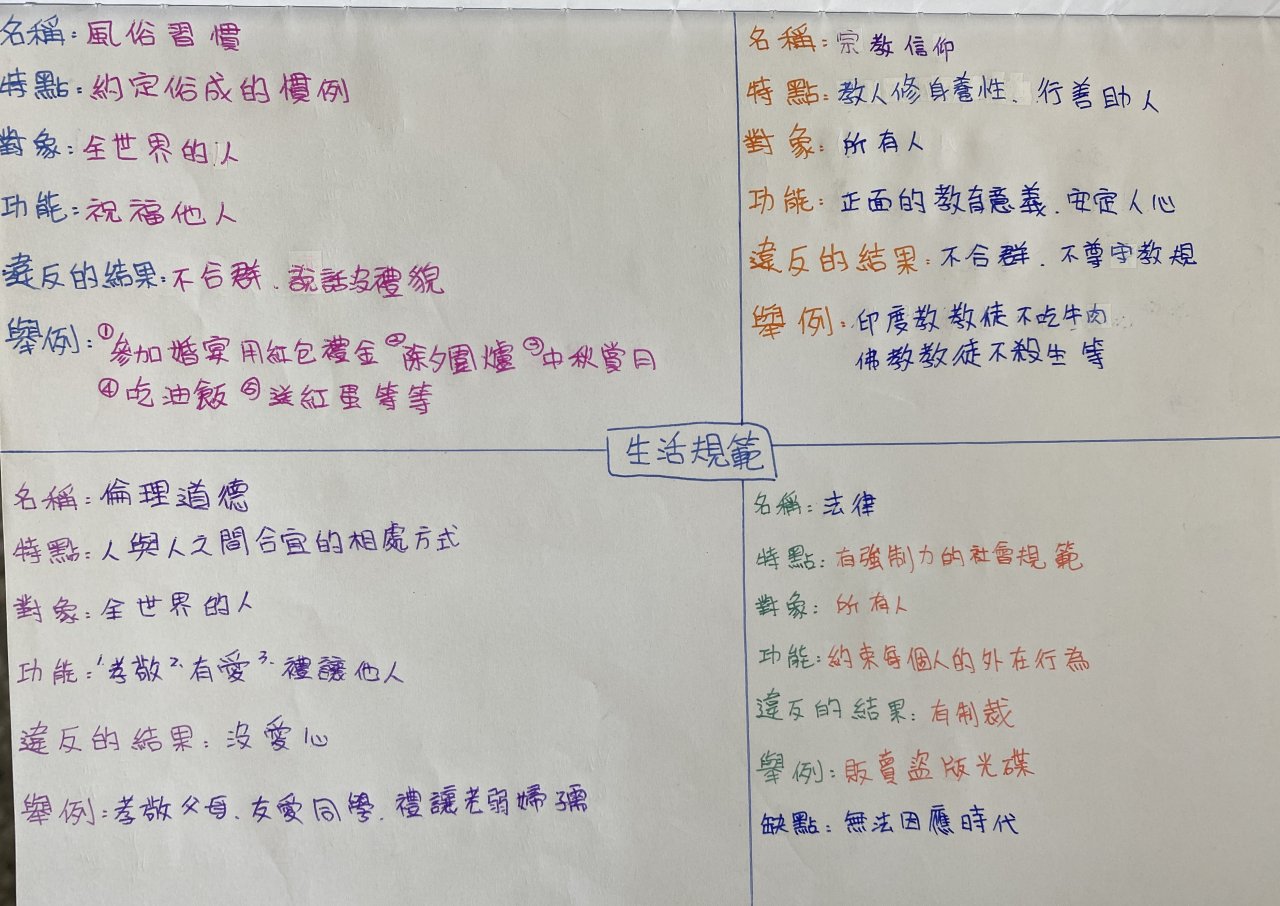 名稱:風俗習慣
特點:約定俗成的慣例
對象:全世界的人
功能:祝福他人
違反的結果:不合群、說話沒禮貌
舉例:①參加婚宴用紅包禮金②除夕圍爐③中秋賞月
④吃油飯⑤送紅蛋等等
名稱:宗教信仰
特點:教人修身養性、行善助人
對象:所有人
功能:正面的教育意義、安定人心
違反的結果:不合群、不尊守教規
舉例:印度教教徒不吃牛肉
佛教教徒不殺生等
生活規範
名稱:倫理道德
特點:人與人之間合宜的相處方式
對象:全世界的人
功能:1.孝敬2.有愛3.禮讓他人
違反的結果:沒愛心
舉例:孝敬父母、友愛同學、禮讓老弱婦孺
名稱:法律
特點:有強制力的社會規範
對象:所有人
功能:約束每個人的外在行為
違反的結果:有制裁
舉例:販賣盜版光碟
缺點:無法因應時代